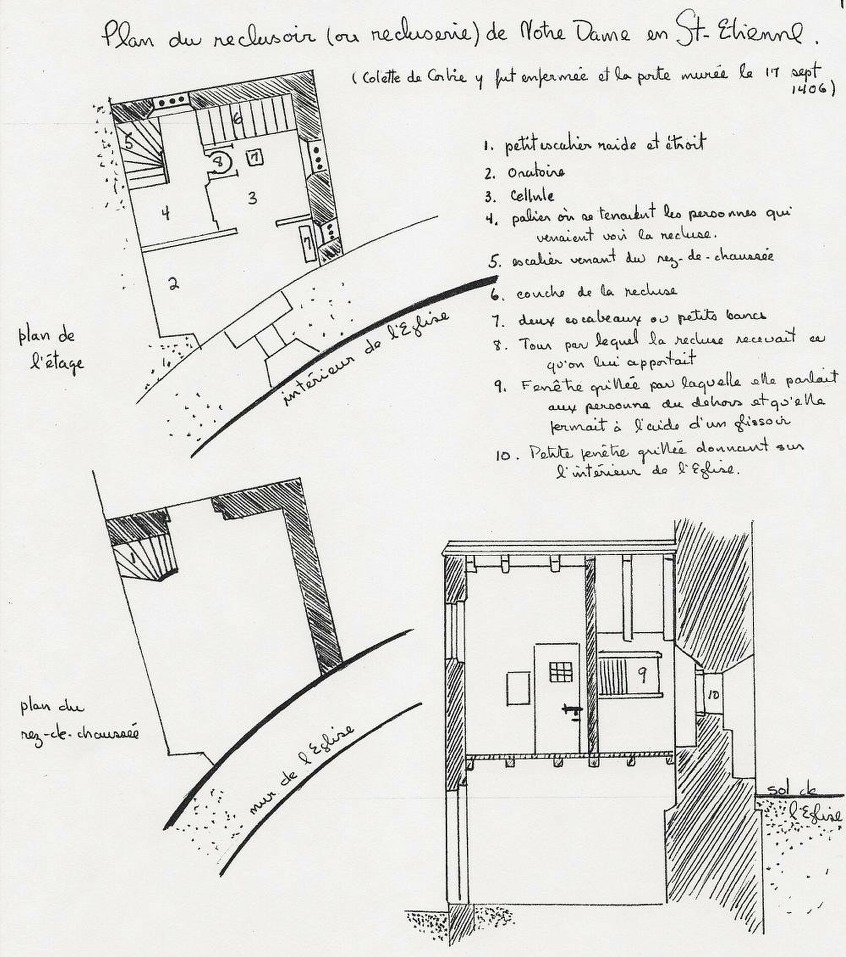 Plan du reclusoir (ou recluserie) de Notre Dame en St-Etienne.
(Colette de Corbie y fut enfermée et la porte murée le 17 sept
1406)
1. petit escalier raide et étroit
2. Oratoire
3. Cellule
4. palier où se tenaient les personnes qui
venaient voir la recluse.
5. escalier venant du rez-de-chaussée
6. couche de la recluse
7. deux escabeaux ou petits bancs
8. Tour par lequel la recluse recevait ce
qu'on lui apportait
9. Fenêtre grillée par laquelle elle parlait
aux personne du dehors et qu'elle
fermait à l'aide d'un glissoir
10. Petite fenêtre grillée donnant sur
l'intérieur de l'Eglise.
5
6
8
7
3
4
7
2
plan de
l'étage
intérieur de l'Eglise
1
plan du
rez-de-chaussée
mur de l'Eglise
9
10
sol de
l'Eglise